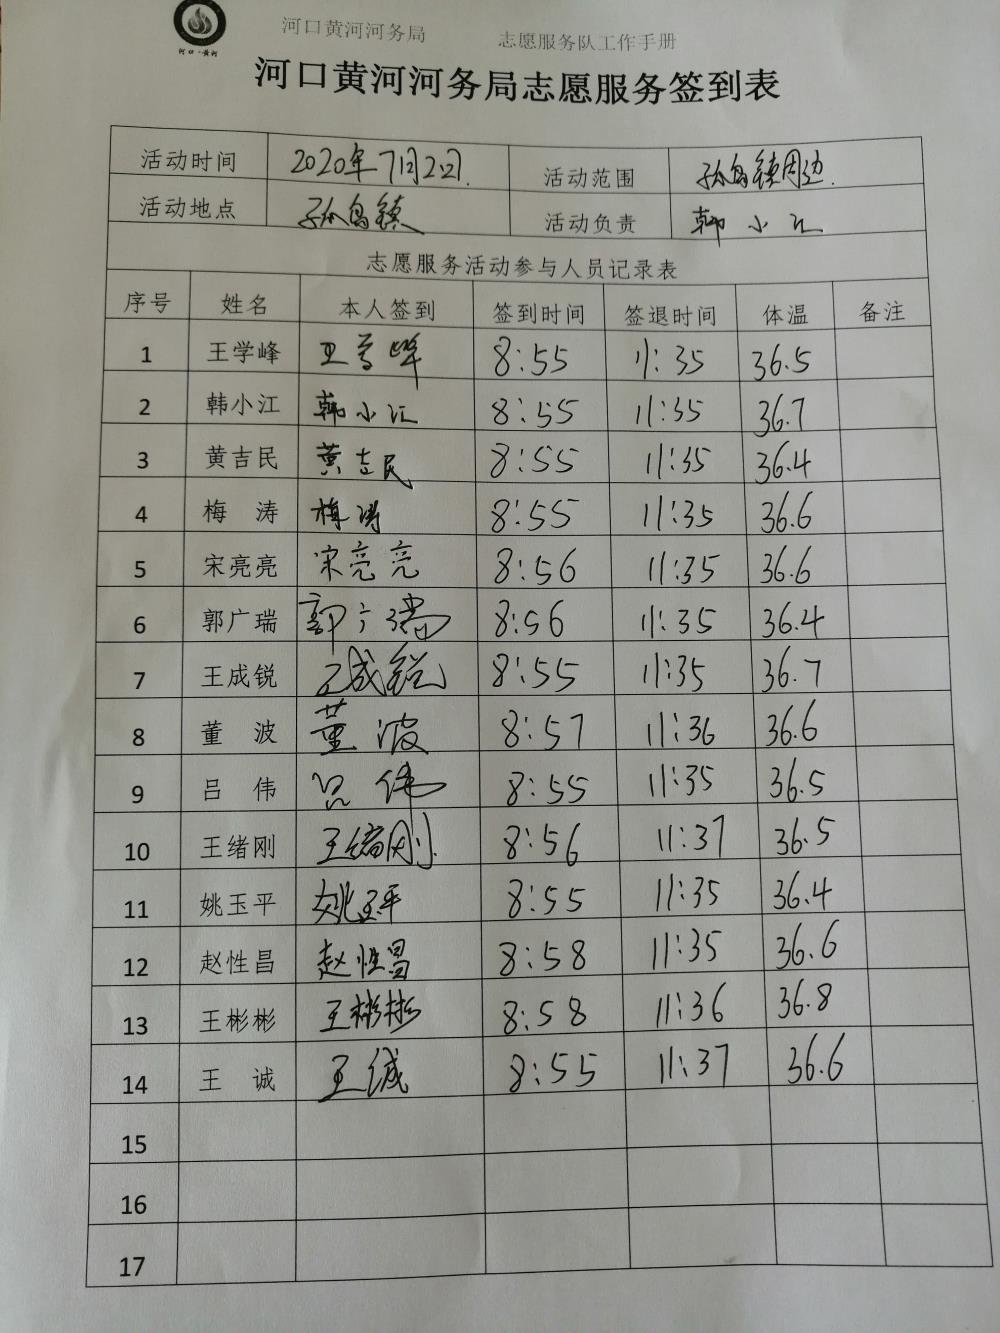 河口·黄河
河口黄河河务局 志愿服务队工作手册
河口黄河河务局志愿服务签到表
活动时间 2020年7月2日. 活动范围 孤岛镇周边.
活动地点 孤岛镇 活动负责 韩小江
志愿服务活动参与人员记录表
序号 姓名 本人签到 签到时间 签退时间 体温 备注
1 王学峰 王学峰 8:55 11:35 36.5
2 韩小江 韩小江 8:55 11:35 36.7
3 黄吉民 黄吉民 8:55 11:35 36.4
4 梅 涛 梅涛 8:55 11:35 36.6
5 宋亮亮 宋亮亮 8:56 11:35 36.6
6 郭广瑞 郭广瑞 8:56 11:35 36.4
7 王成锐 王成锐 8:55 11:35 36.7
8 董 波 董波 8:57 11:36 36.6
9 吕 伟 吕伟 8:55 11:35 36.5
10 王绪刚 王绪刚 8:56 11:37 36.5
11 姚玉平 姚玉平 8:55 11:35 36.4
12 赵性昌 赵性昌 8:58 11:35 36.6
13 王彬彬 王彬彬 8:58 11:36 36.8
14 王 诚 王诚 8:55 11:37 36.6
15
16
17